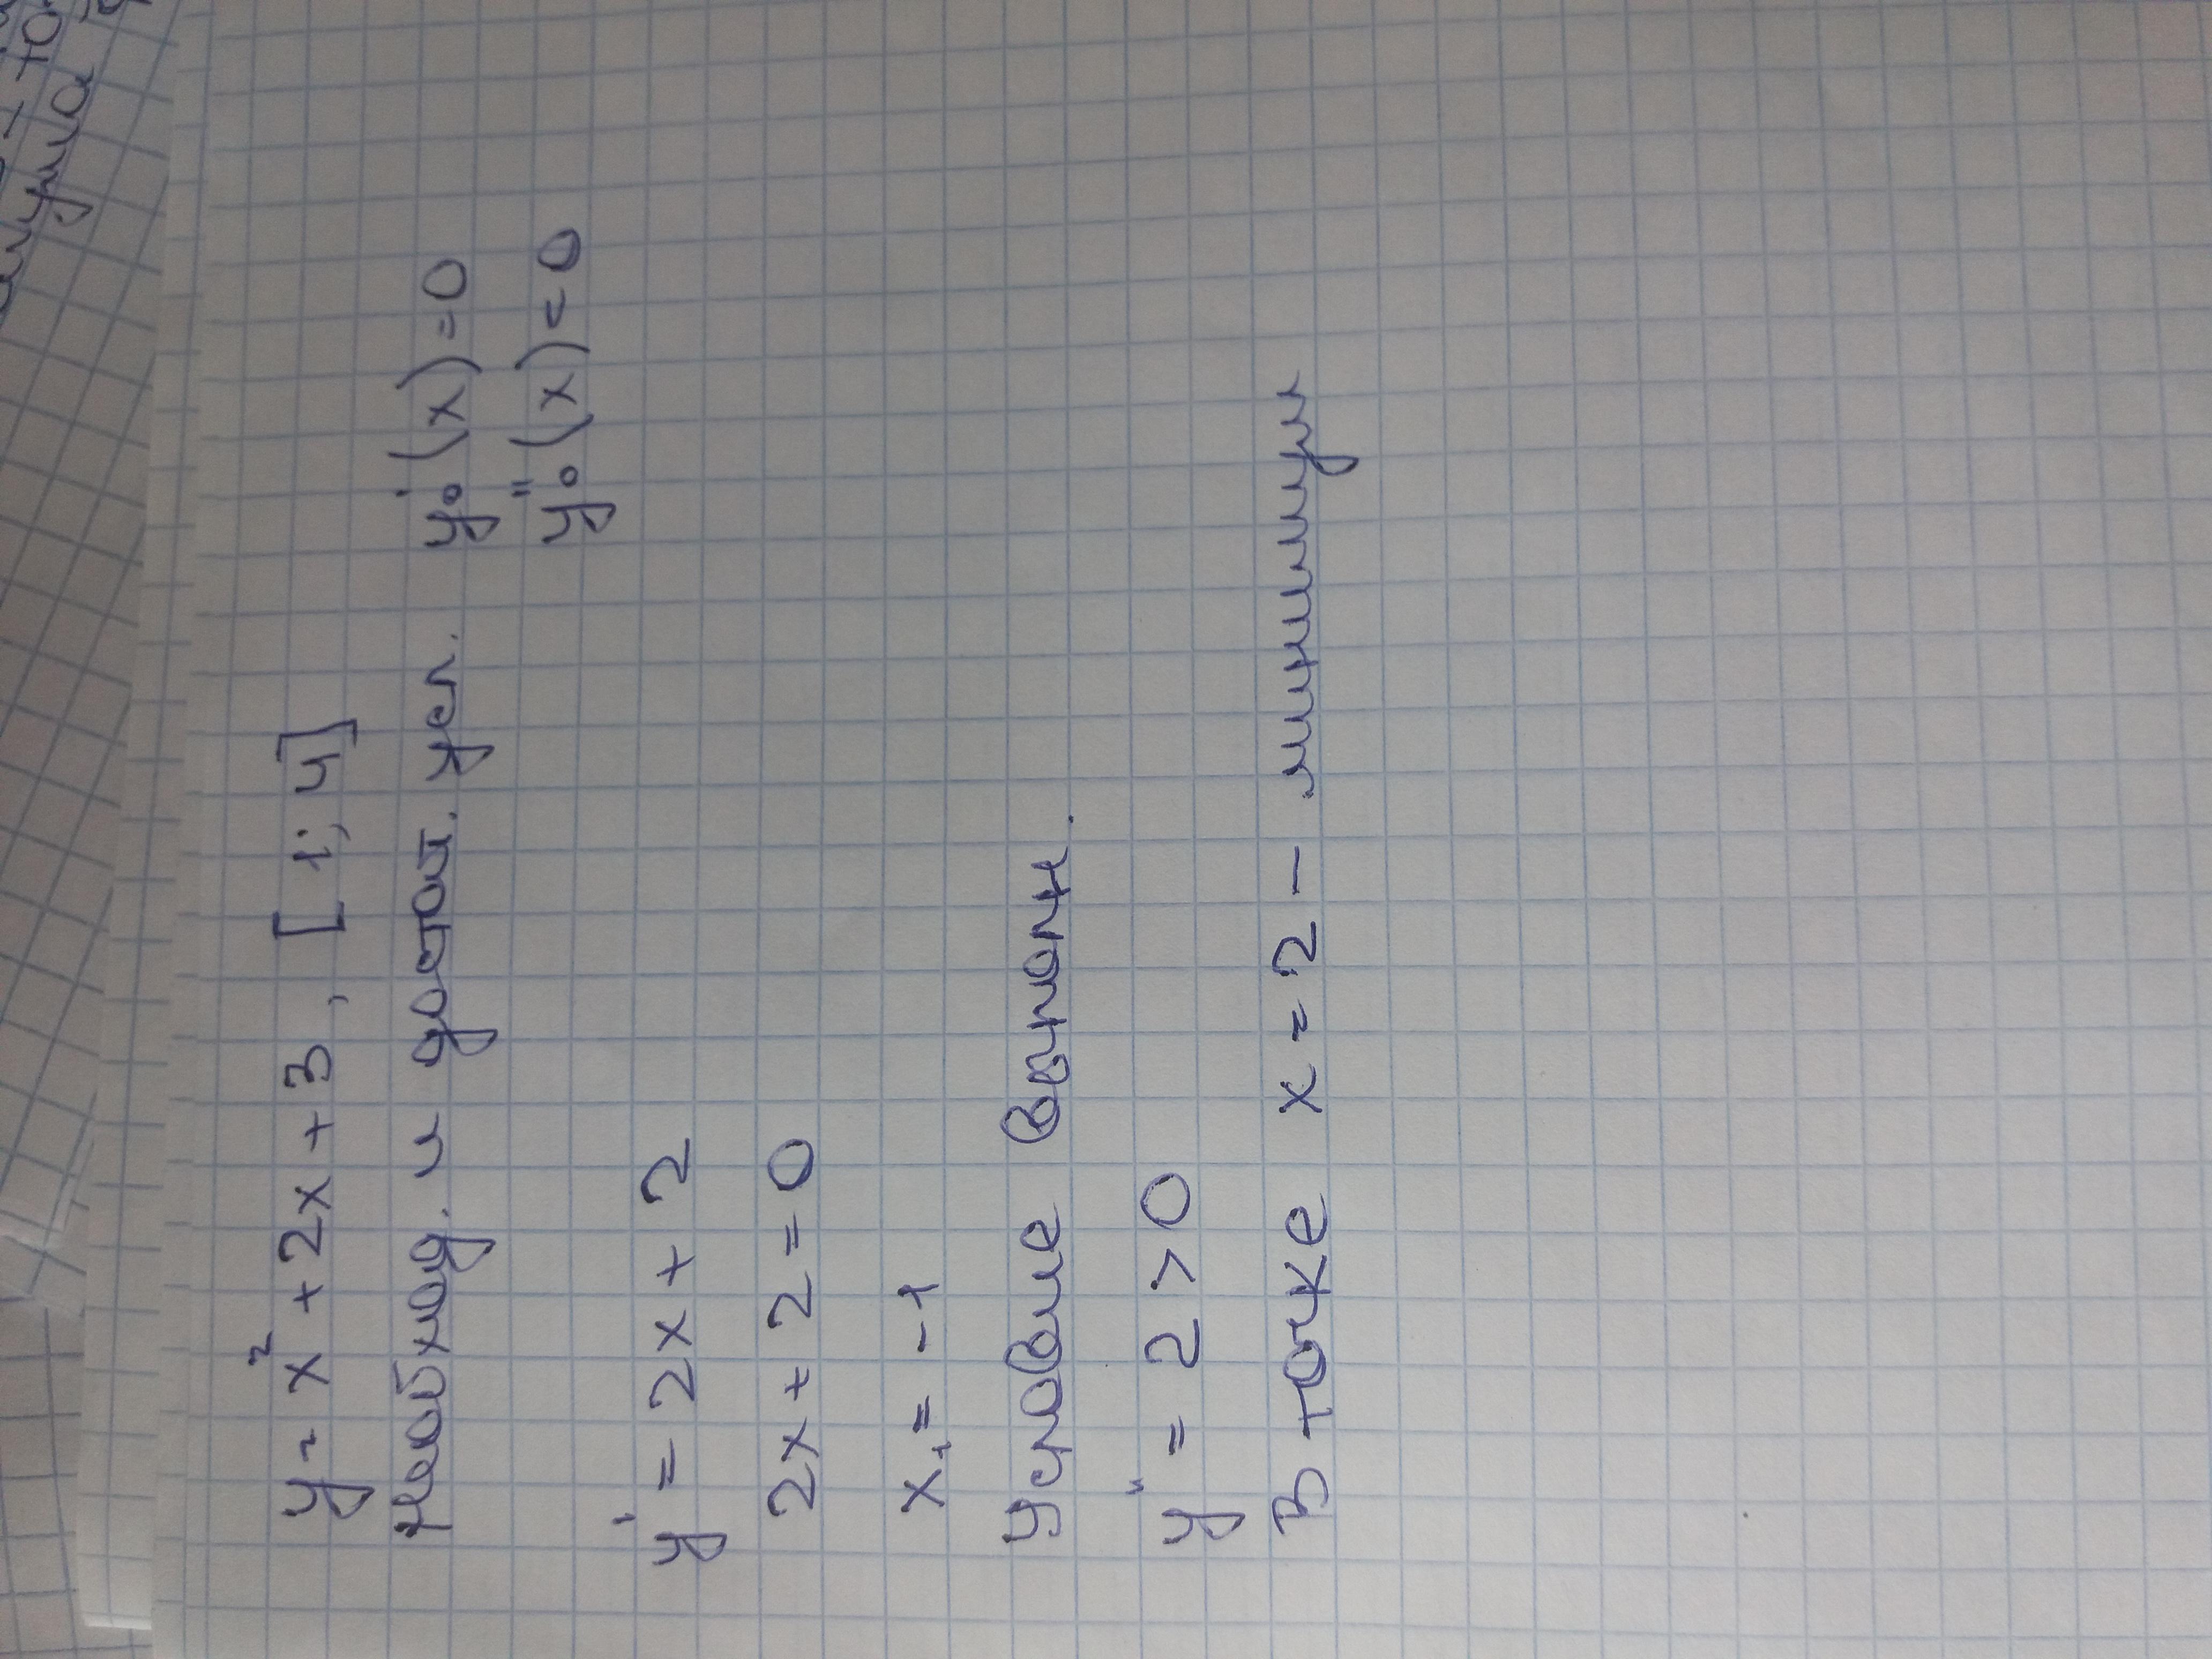 y = x² + 2x + 3, [1; 4]
Необход. и достат. усл. y₀'(x)=0
y₀''(x)=0
y' = 2x + 2
2x + 2 = 0
x₁ = -1
Условие выполн.
y'' = 2 > 0
В точке x = 2 - минимум